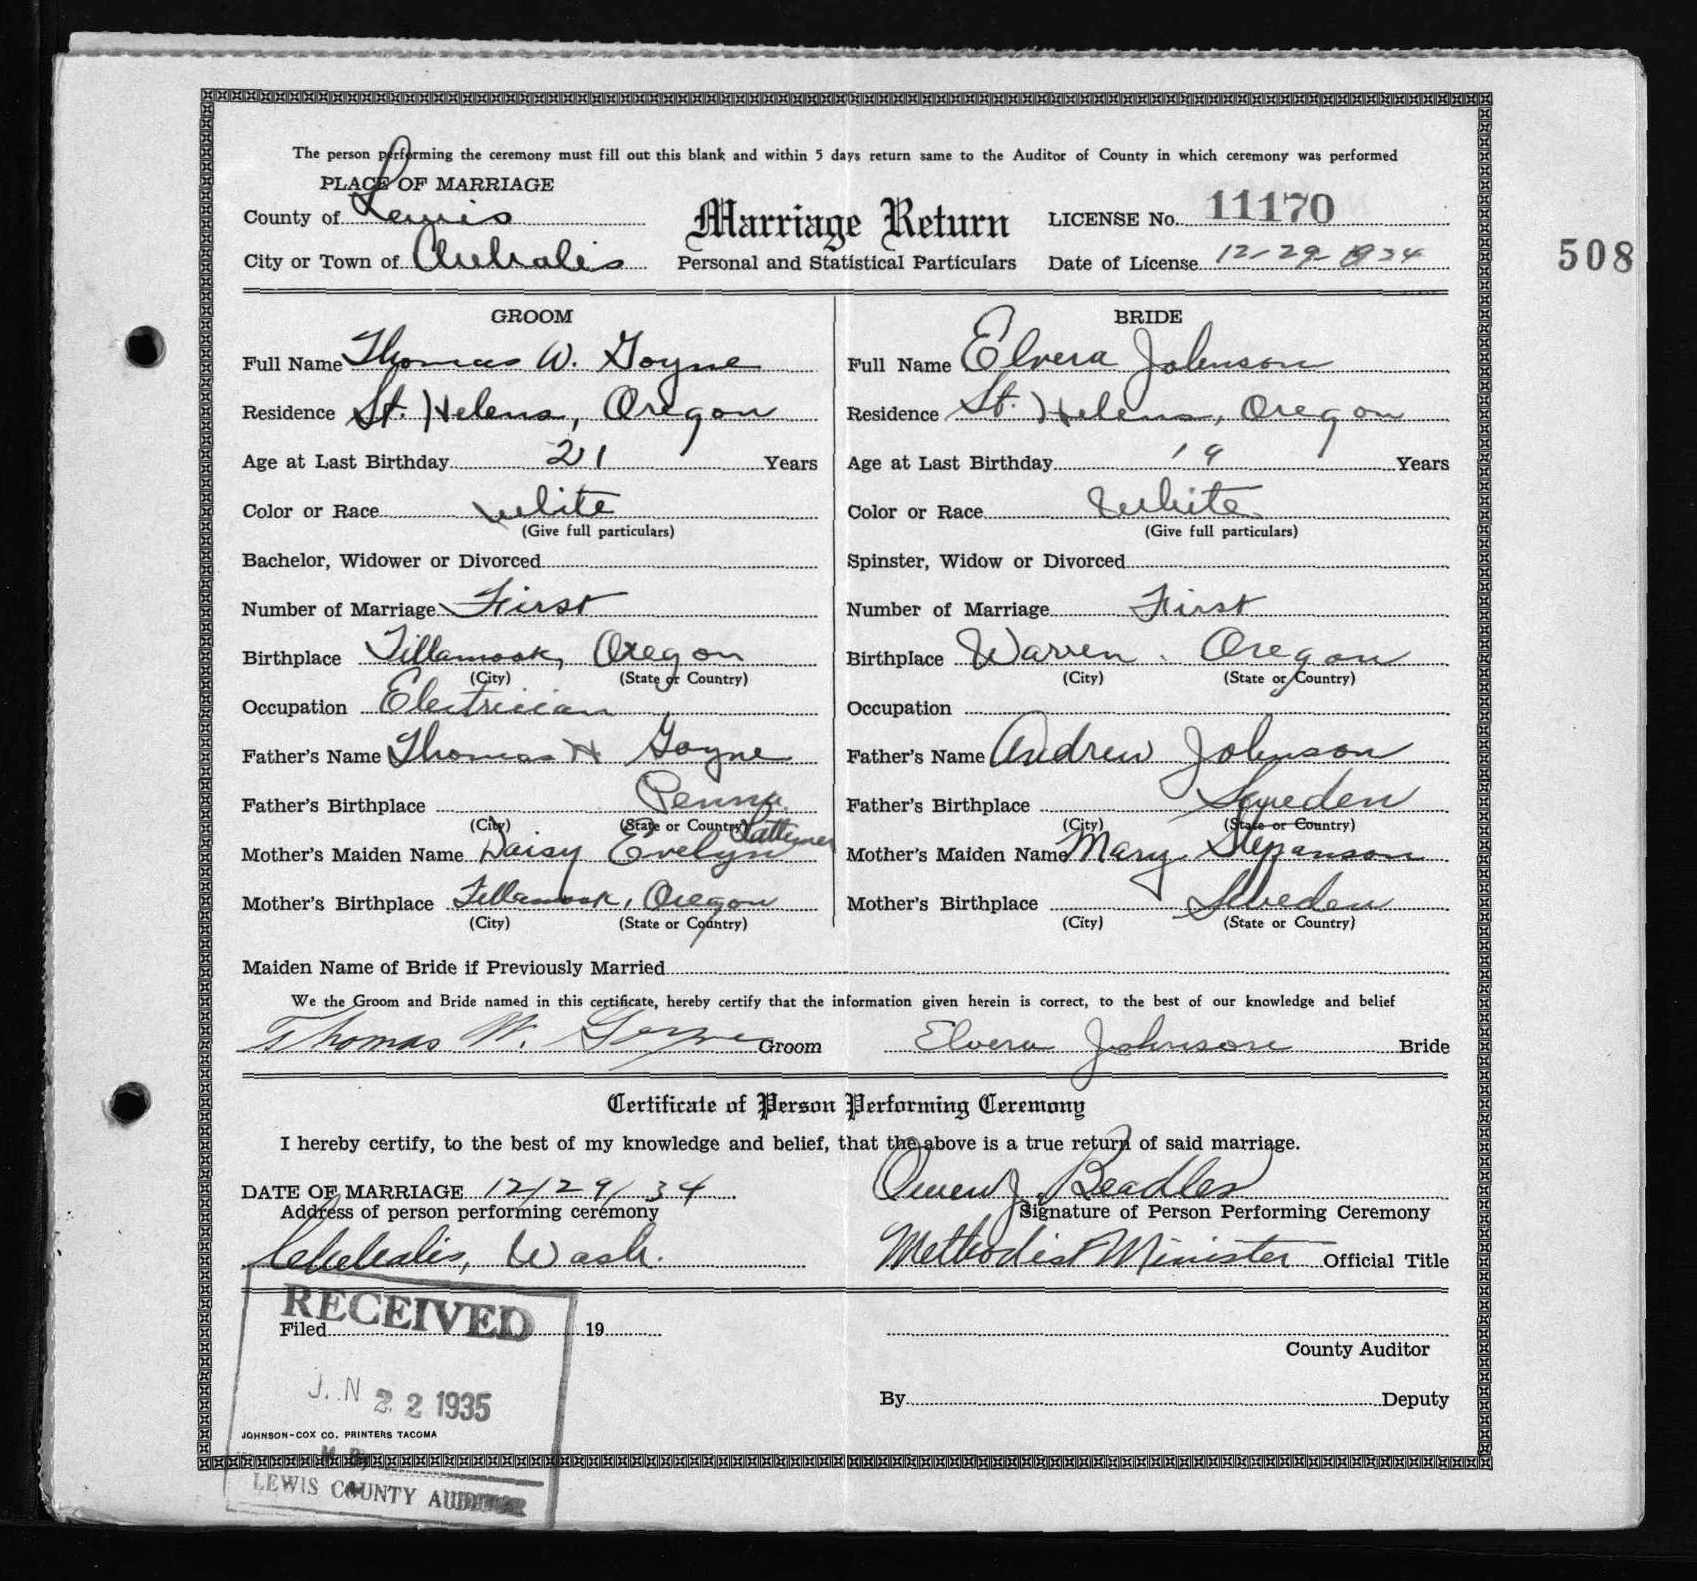 The person performing the ceremony must fill out this blank and within 5 days return same to the Auditor of County in which ceremony was performed
PLACE OF MARRIAGE
County of Lewis
City or Town of Chehalis
Marriage Return
Personal and Statistical Particulars
LICENSE No. 11170
Date of License 12-29-1934
508
GROOM
Full Name Thomas W. Goyne
Residence St. Helens, Oregon
Age at Last Birthday 21 Years
Color or Race White
(Give full particulars)
Bachelor, Widower or Divorced
Number of Marriage First
Birthplace Tillamook, Oregon
(City) (State or Country)
Occupation Electrician
Father's Name Thomas H Goyne
Father's Birthplace Penna.
(City) (State or Country)
Mother's Maiden Name Daisy Evelyn Lattimer
Mother's Birthplace Tillamook, Oregon
(City) (State or Country)
BRIDE
Full Name Elvera Johnson
Residence St. Helens, Oregon
Age at Last Birthday 19 Years
Color or Race White
(Give full particulars)
Spinster, Widow or Divorced
Number of Marriage First
Birthplace Warren. Oregon
(City) (State or Country)
Occupation
Father's Name Andrew Johnson
Father's Birthplace Sweden
(City) (State or Country)
Mother's Maiden Name Mary Stepanson
Mother's Birthplace Sweden
(City) (State or Country)
Maiden Name of Bride if Previously Married
We the Groom and Bride named in this certificate, hereby certify that the information given herein is correct, to the best of our knowledge and belief
Thomas W. Goyne Groom Elvera Johnson Bride
Certificate of Person Performing Ceremony
I hereby certify, to the best of my knowledge and belief, that the above is a true return of said marriage.
DATE OF MARRIAGE 12/29/34 Owen J. Beadles
Address of person performing ceremony Signature of Person Performing Ceremony
Chehalis, Wash. Methodist Minister Official Title
RECEIVED
Filed 19
County Auditor
J.N 22 1935
By Deputy
JOHNSON-COX CO. PRINTERS TACOMA
LEWIS COUNTY AUDITOR